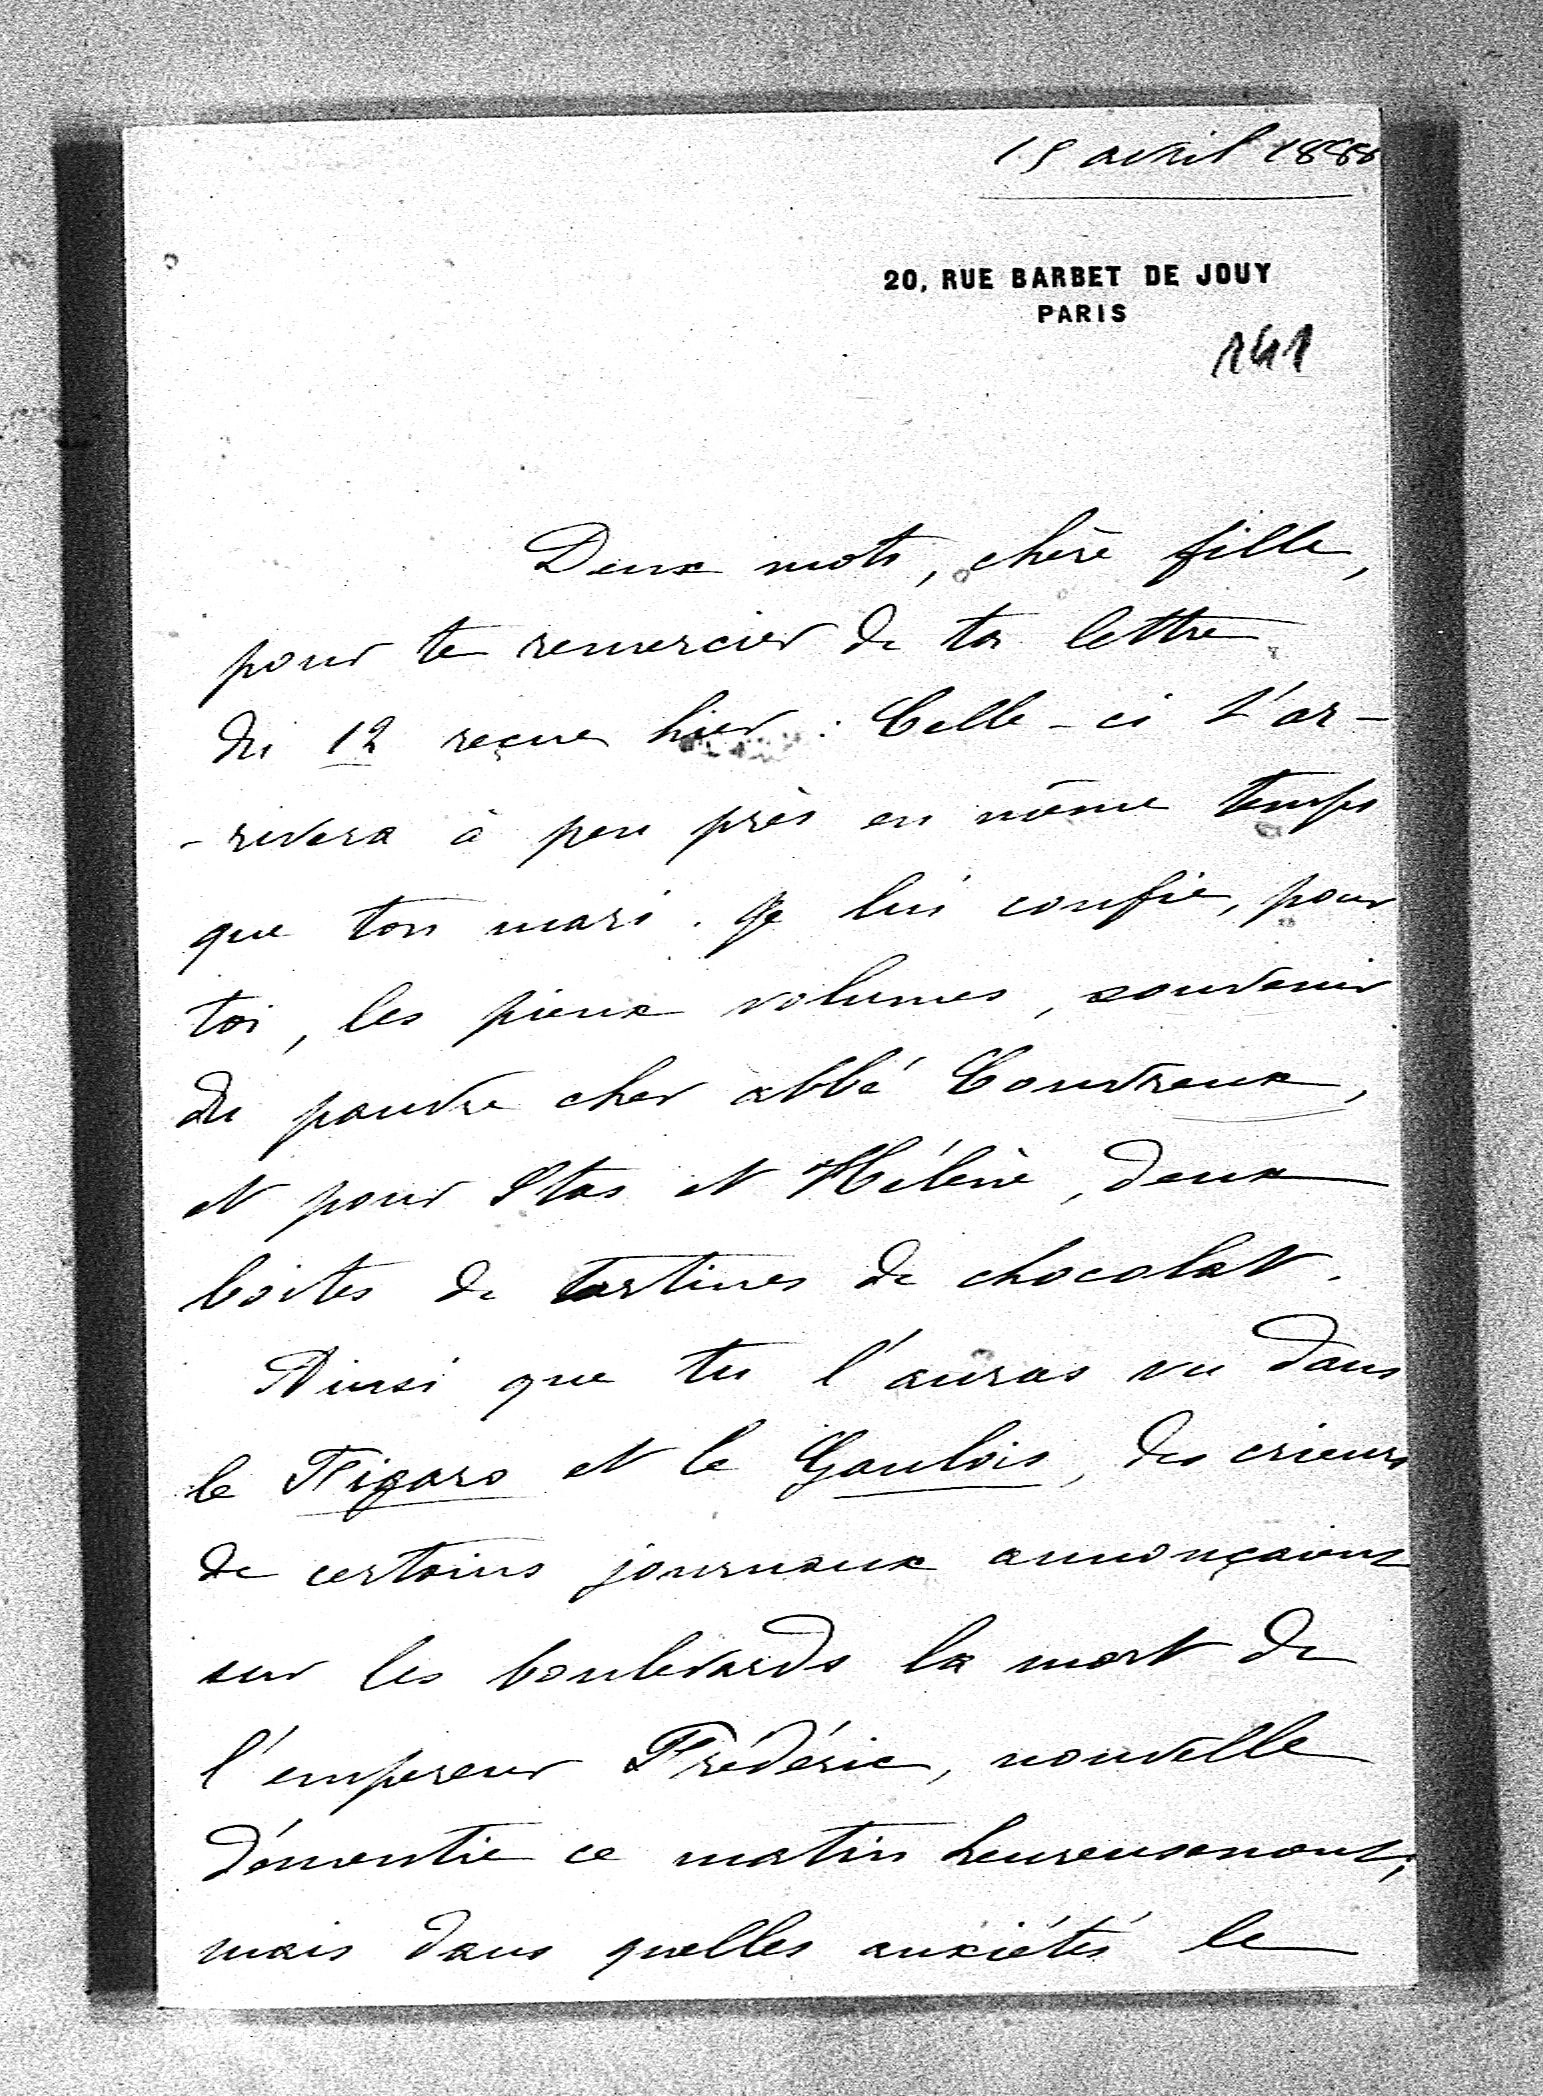 15 avril 1888
20, RUE BARBET DE JOUY
PARIS
141
Deux mots, chère fille,
pour te remercier de ta lettre
du 12 reçue hier : Celle-ci t'ar-
-rivera à peu près en même temps
que ton mari. Je lui confie, pour
toi, les pieux volumes, souvenir
du pauvre cher abbé Couvreux,
et pour Stas et Hélène, deux
boites de tartines de chocolat.
Ainsi que tu l'auras vu dans
le Figaro et le Gaulois, des crieurs
de certains journaux annonçaient
sur les boulevards la mort de
l'empereur Frédéric, nouvelle
démentie ce matin heureusement;
mais dans quelles anxiétés le